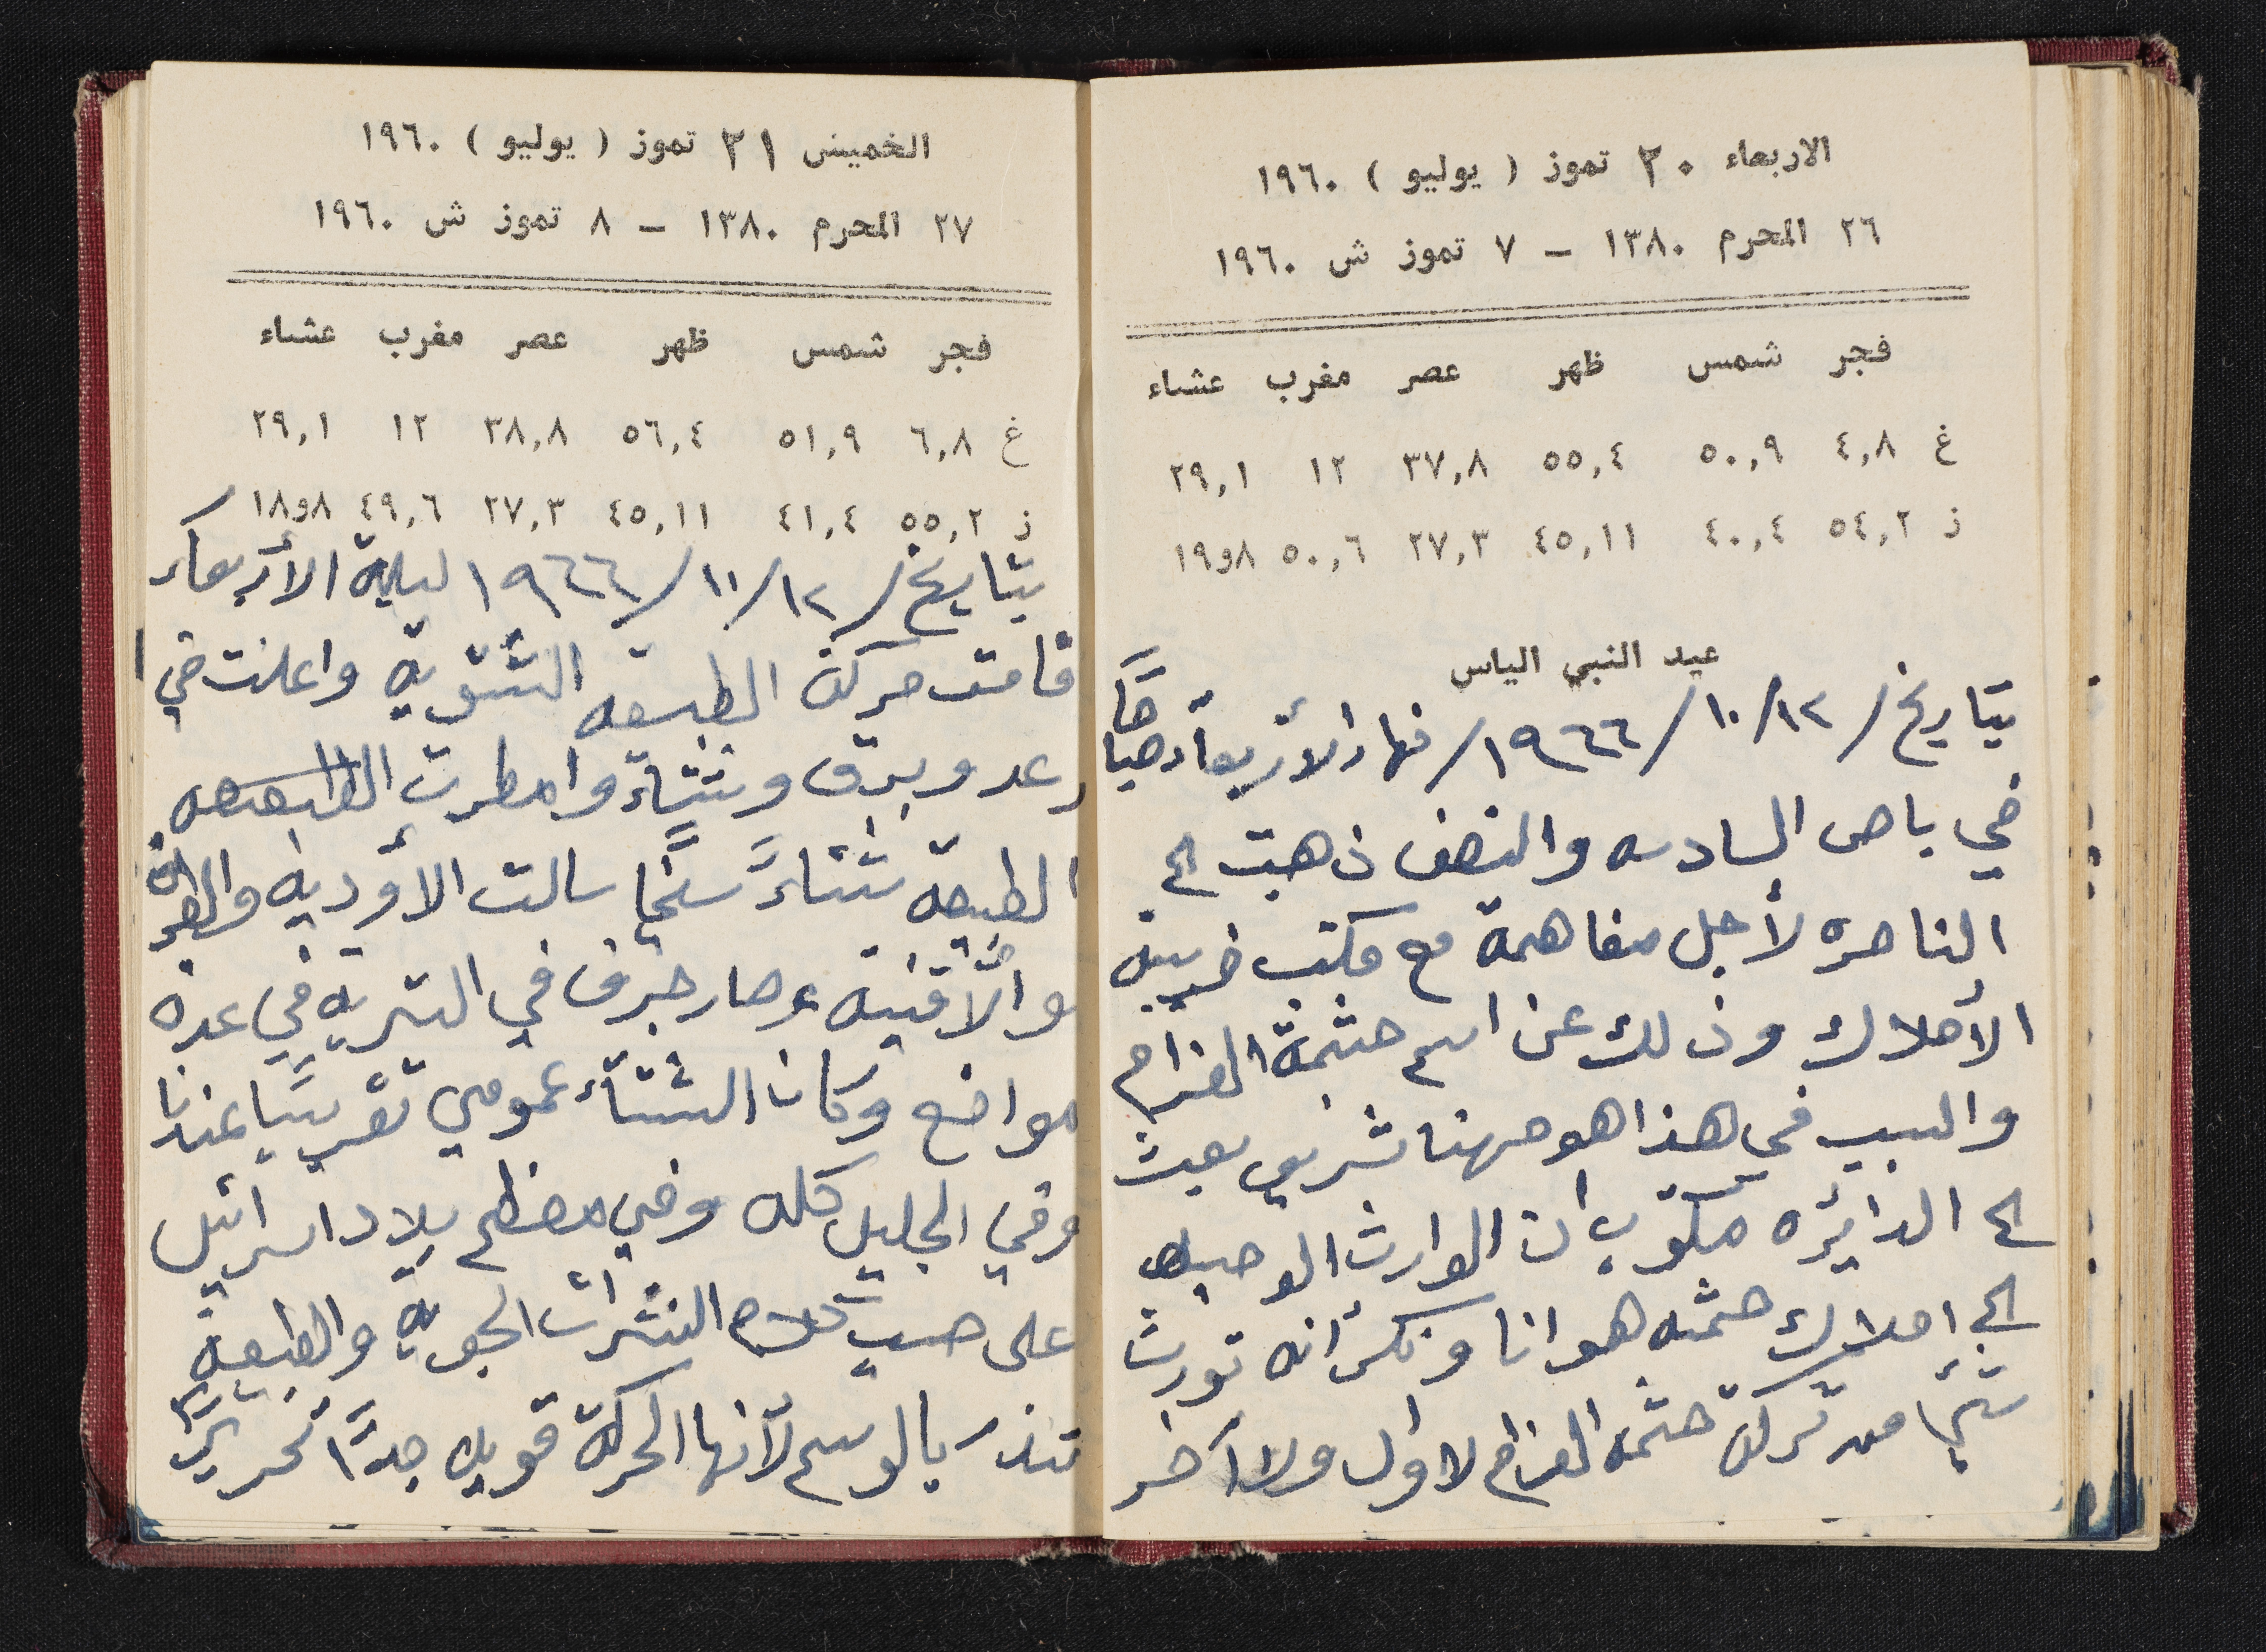 الاربعاء ٢٠ تموز ( يوليو ) ١٩٦٠
٢٦ المحرم ١٣٨٠ – ٧ تموز ش ١٩٦٠
فجر شمس ظهر عصر مغرب عشاء
غ ٤,٨ ٥٠,٩ ٥٥,٤ ٣٧,٨ ١٢ ٢٩,١
ز ٥٤,٢ ٤٠,٤ ٤٥,١١ ٢٧,٣ ٥٠,٦ ١٩و٨
عيد النبي الياس
بتاريخ / ١٢ / ١٠ / ١٩٦٦ / نهار الأربعاء صباحاً
في باص السادسه والنصف ذهبت الى
الناصره لأجل مفاهمة مع مكتب ضريبة
الأملاك وذلك عن اسم حشمة الغزام
والسبب في هذا هو مهنا شريف بعث
الى الدائره مكتوب ان الوارث الوحيد
الى املاك حشمه هو انا ونكر أنه تورث
شيئ من تركة حشمه الغزام لا اول ولا آخر
الخميس ٢١ تموز ( يوليو ) ١٩٦٠
٢٧ المحرم ١٣٨٠ – ٨ تموز ش ١٩٦٠
فجر شمس ظهر عصر مغرب عشاء
غ ٦,٨ ٥١,٩ ٥٦,٤ ٣٨,٨ ١٢ ٢٩,١
ز ٥٥,٢ ٤١,٤ ٤٥,١١ ٢٧,٣ ٤٩,٦ ١٨و٨
بتاريخ / ١٢ / ١٠ / ١٩٦٦ ليلة الأربعاء
قامت حركة الطبيعه الشتويه واعلنت في
رعد وبرق وشتاء وامطرت
الطبيعة شتاءً سخيا سالت الأوديه
والأقنيه وصار جرف في التربه في عدة
مواضع وكان الشتاء عمومي تقريبًا عندنا
وفي الجليل كله وفي معظم بلاد اسرائيل
على حسب كلام النشرات الجويه والطبيعة
تنذر بالوسم لأنها الحركة قويه جدًا